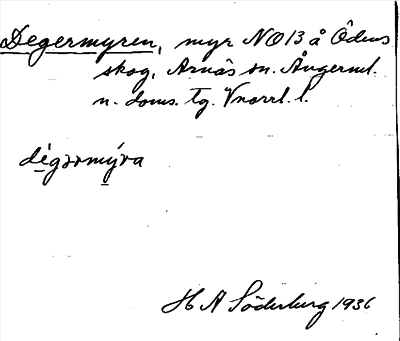 Degermyren, myr NO13 å Ödens
skog, Arnäs sn. Ångerml.
n. doms. tg. Vnorrl. l.
digərmýra
H A Söderberg 1936